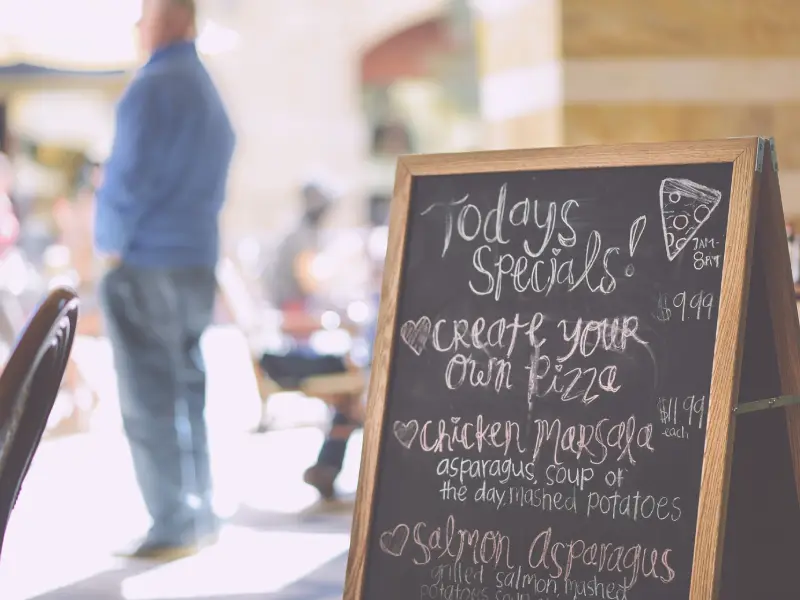 Todays
Specials!
7AM-
8PM
$9.99
CREATE YOUR
OWN Pizza
$11.99
each
Chicken Marsala
asparagus, soup of
the day, mashed potatoes
Salmon Asparagus
grilled salmon, mashed
potatoes, soup